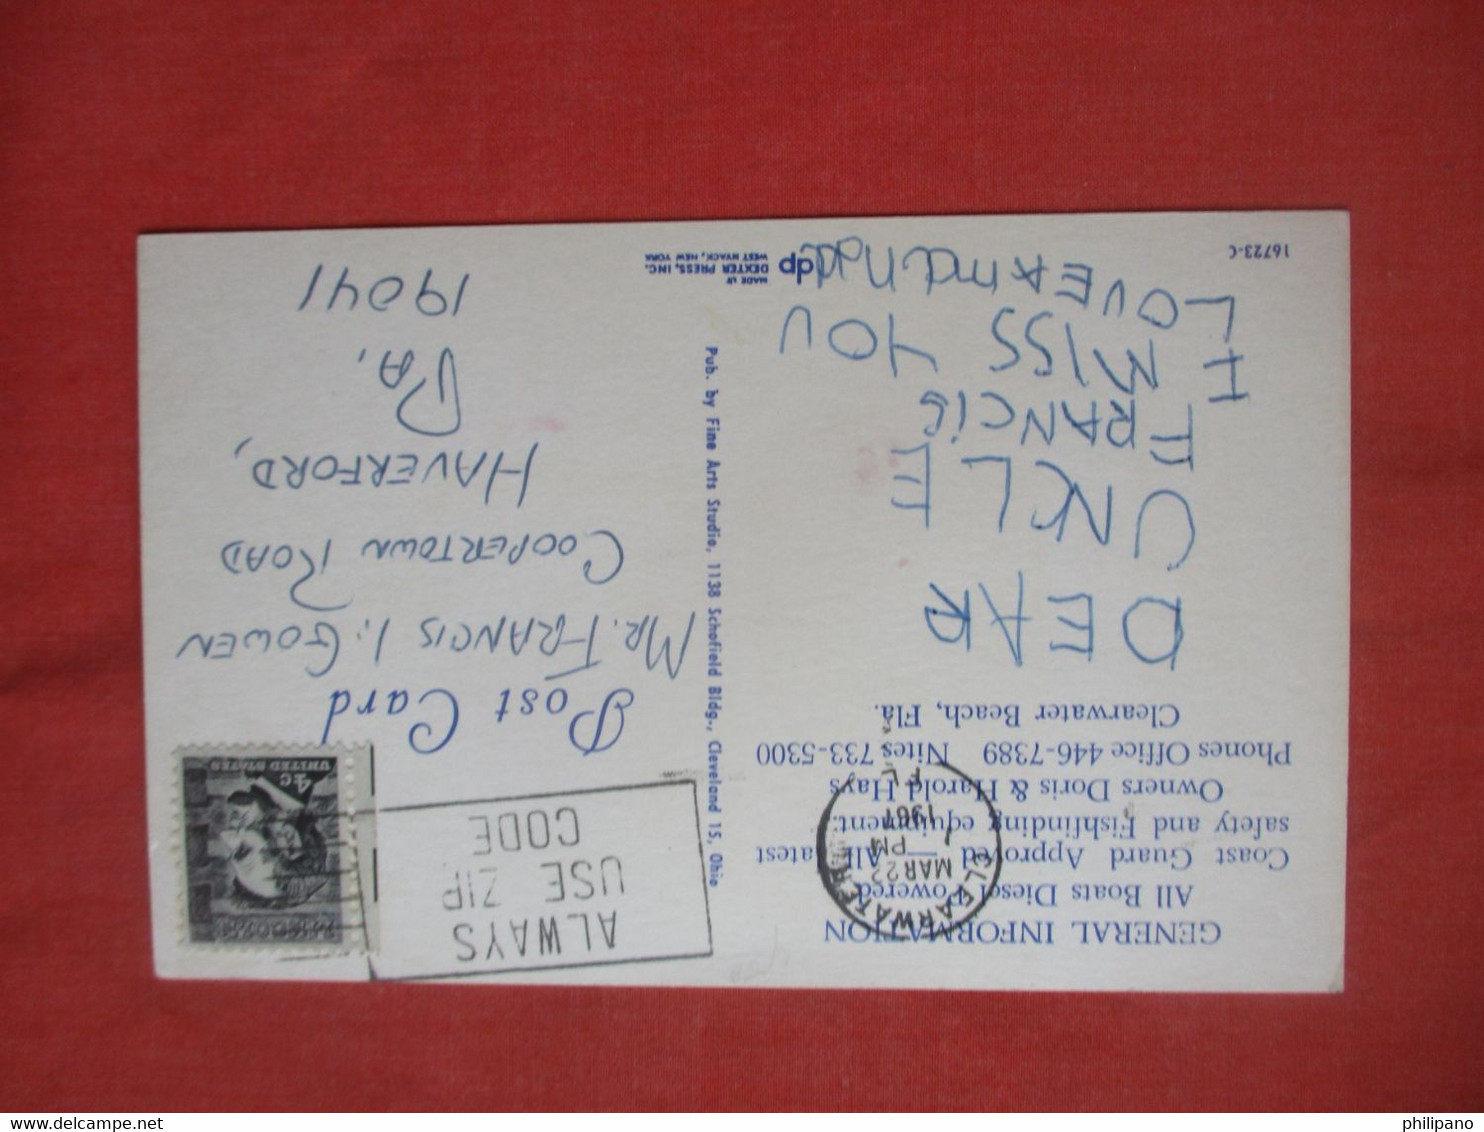 GENERAL INFORMATION
All Boats Diesel Powered
Coast Guard Approved — All latest
safety and Fishfinding equipment.
Owners Doris & Harold Hays
Phones Office 446-7389 Nites 733-5300
Clearwater Beach, Fla.
DEAR
UNCLE
FRANCIS
I MISS YOU
LOVE Amanda
16723-C
CLEARWATER
MAR 22
PM
1967
FL
ALWAYS
USE ZIP
CODE
4c
UNITED STATES
Post Card
MR. FRANCIS I. GOWEN
COOPERTOWN ROAD
HAVERFORD,
PA.
19041
Pub. by Fine Arts Studio, 1138 Schofield Bldg., Cleveland 15, Ohio
dp
MADE BY
DEXTER PRESS, INC.
WEST NYACK, NEW YORK
philipano